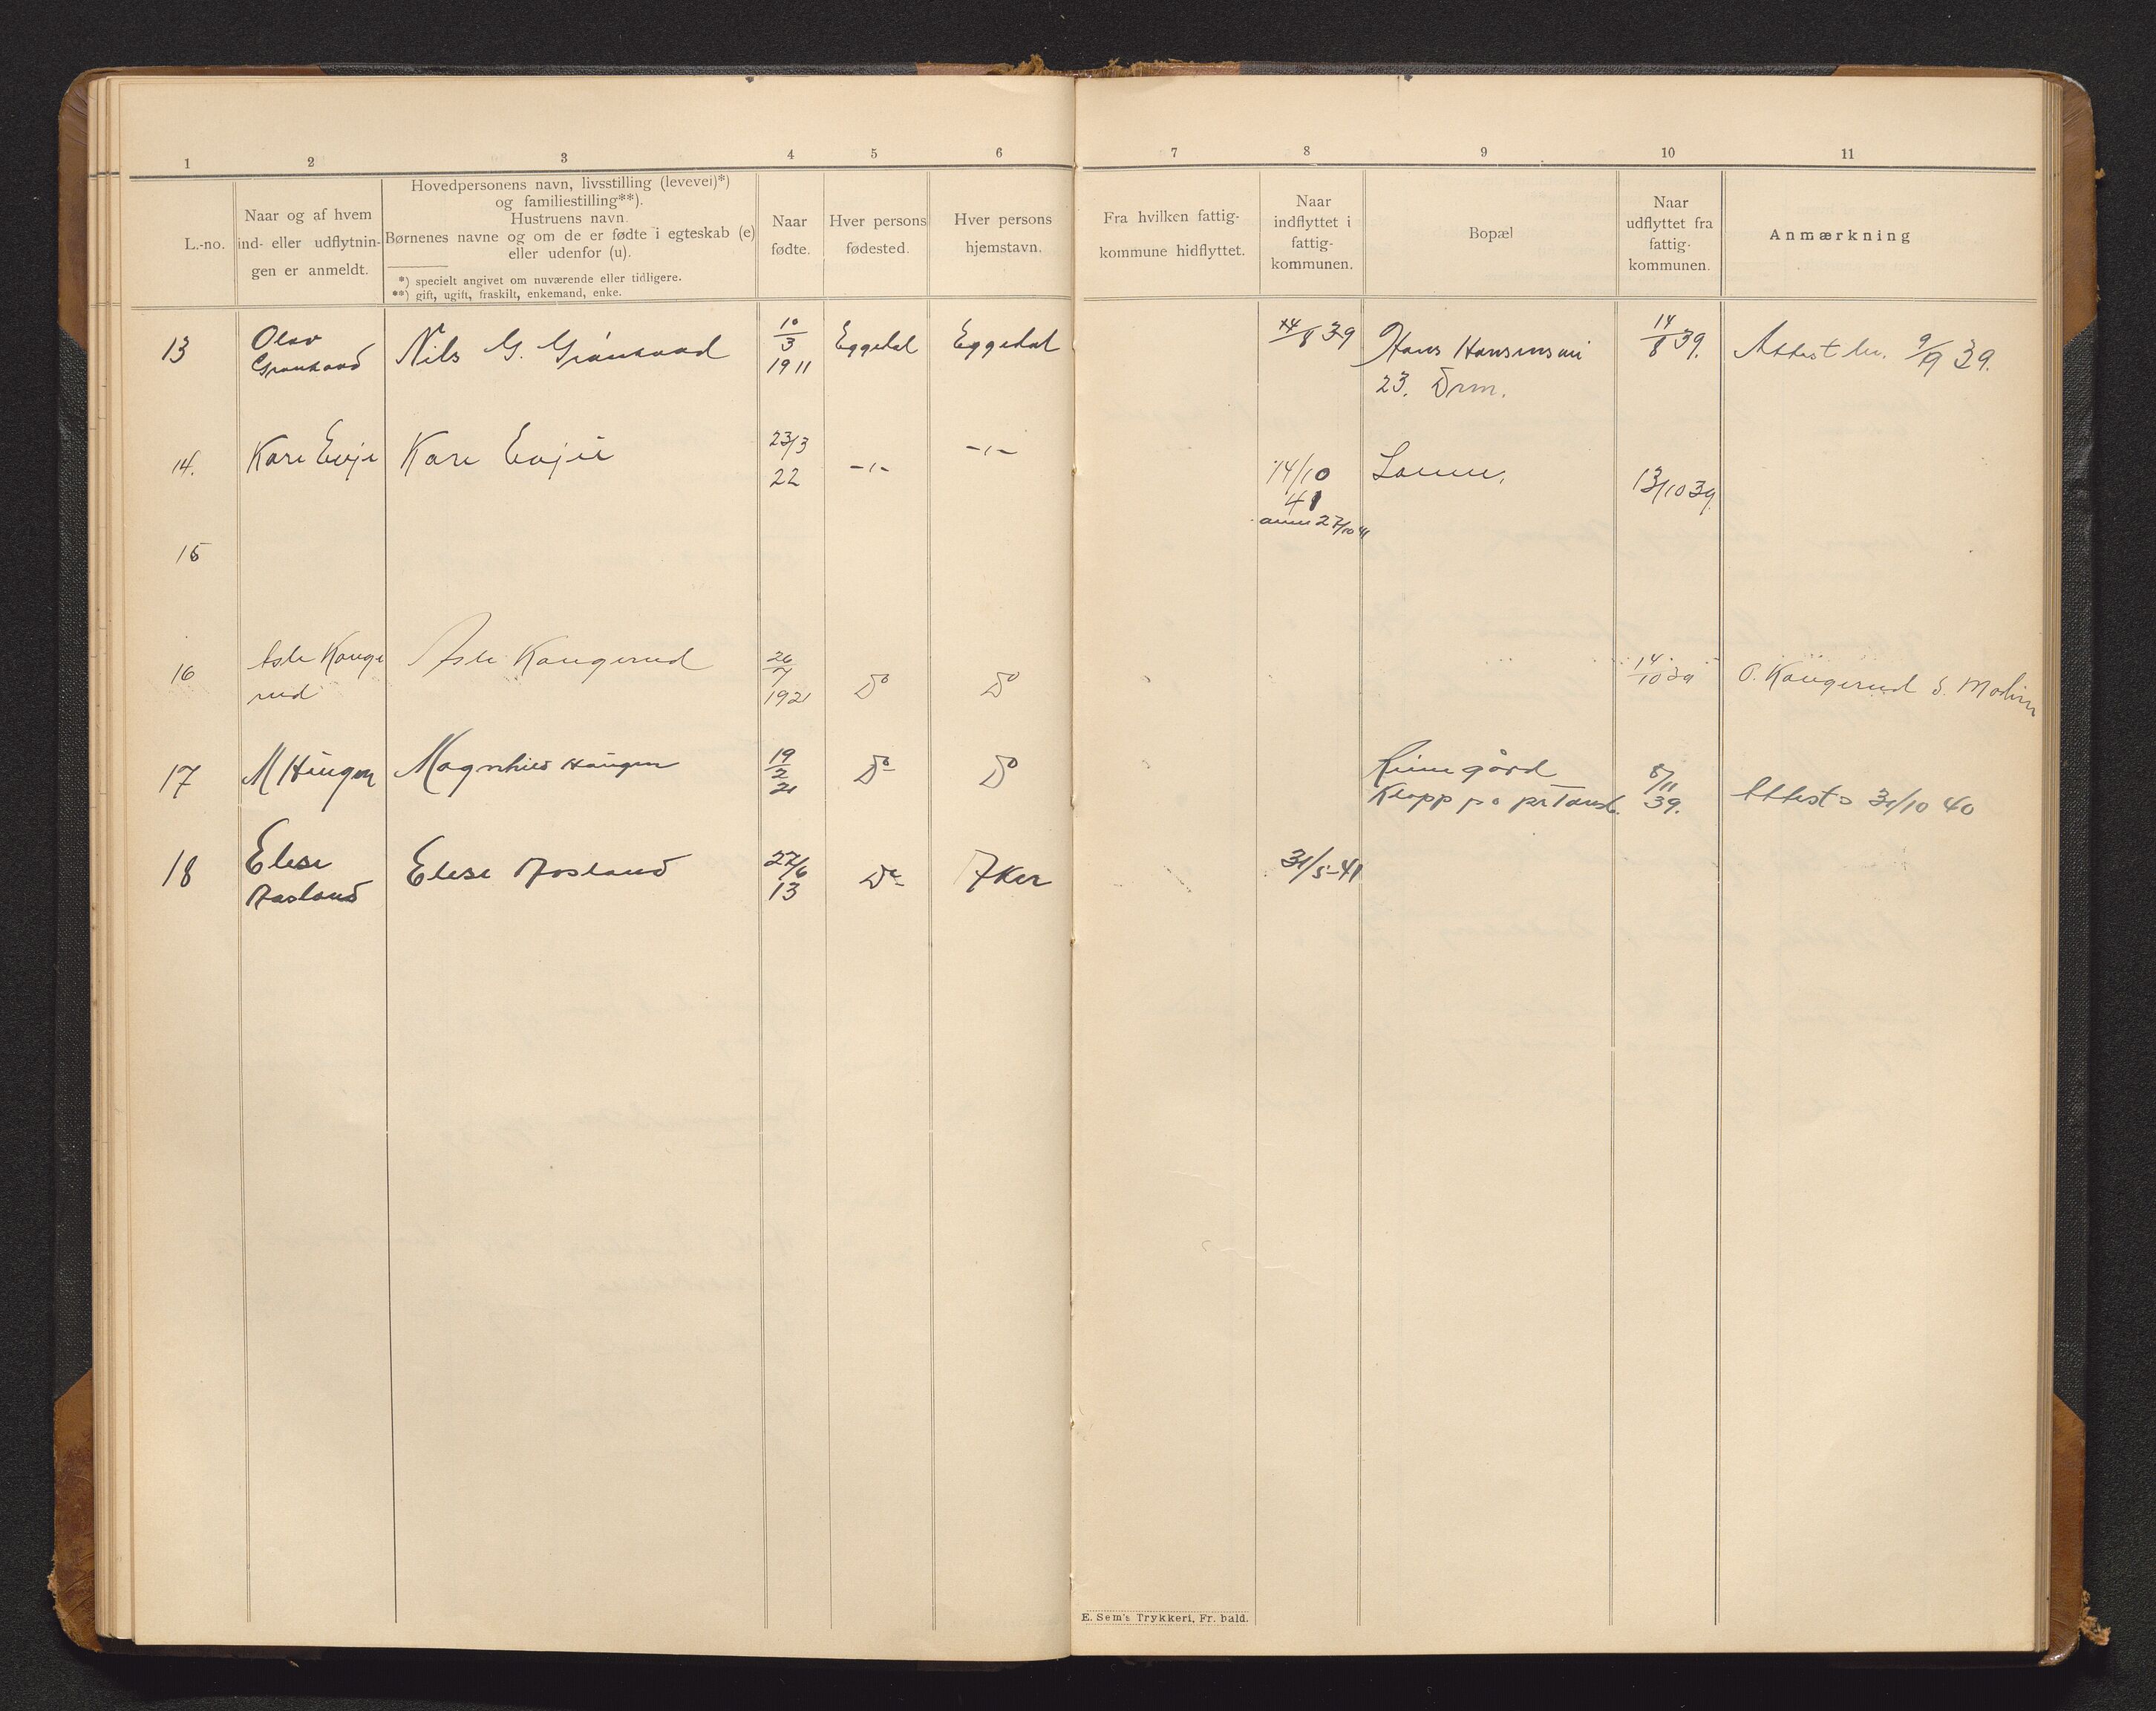 1 2 3 4 5 6 7 8 9 10 11
L.-no.
Naar og af hvem
ind- eller udflytnin-
gen er anmeldt.
Hovedpersonens navn, livsstilling (levevei)*)
og familiestilling**).
Hustruens navn.
Børnenes navne og om de er fødte i egteskab (e)
eller udenfor (u).
*) specielt angivet om nuværende eller tidligere.
**) gift, ugift, fraskilt, enkemand, enke.
Naar
fødte.
Hver persons
fødested.
Hver persons
hjemstavn.
Fra hvilken fattig-
kommune hidflyttet.
Naar
indflyttet i
fattig-
kommunen.
Bopæl
Naar
udflyttet fra
fattig-
kommunen.
Anmærkning
13
Olav
Nils G.
10/3
1911
Eggedal
Eggedal
14/8 39
Hans Hansens
23. Drm.
14/8 39.
Attest 9/9 39.
14.
Kari Evje
Kari Evje
23/3
22
-"-
-"-
14/10
41
27/10 41
13/10 39
15
16
Asle Kauge
rud
Asle Kaugerud
26/7
1921
Do
Do
14/10 39
O. Kaugerud S. Modum
17
M Haugen
Magnhild Haugen
19/2
21
Do
Do
gård
Klopp
8/11
39.
Attest 31/10 40
18
Elise
Aasland
Elise Aasland
27/6
13
Do
Aker
31/5-41
E. Sem's Trykkeri, Fr. hald.